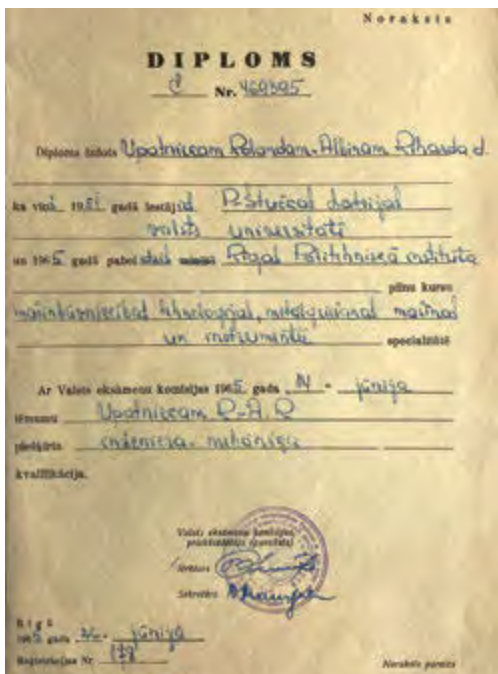 Noraksts
DIPLOMS
Nr.
Diploms izdots Upatniecam Rolandam-Albinam Riharda d.
ka viņš 19 gadā iestājies P. Stučkas Latvijas
valsts universitātē
un 1965 gadā pabeidzis Rīgas Politehniskā institūta
pilnu kursu
mašīnbūvniecības tehnoloģijas, metālgriešanas mašīnas
un instrumenti specialitātē
Ar Valsts eksāmenu komisijas 1965 gada jūnija
lēmumu Upatniecam R.-A. R
piešķirta inženiera-mehāniķa
kvalifikācija.
Valsts eksāmenu komisijas
priekšsēdētājs (paraksts)
Rektors
Sekretārs
Rīgā
1965 gada jūnijā
Reģistrācijas Nr
Noraksts pareizs